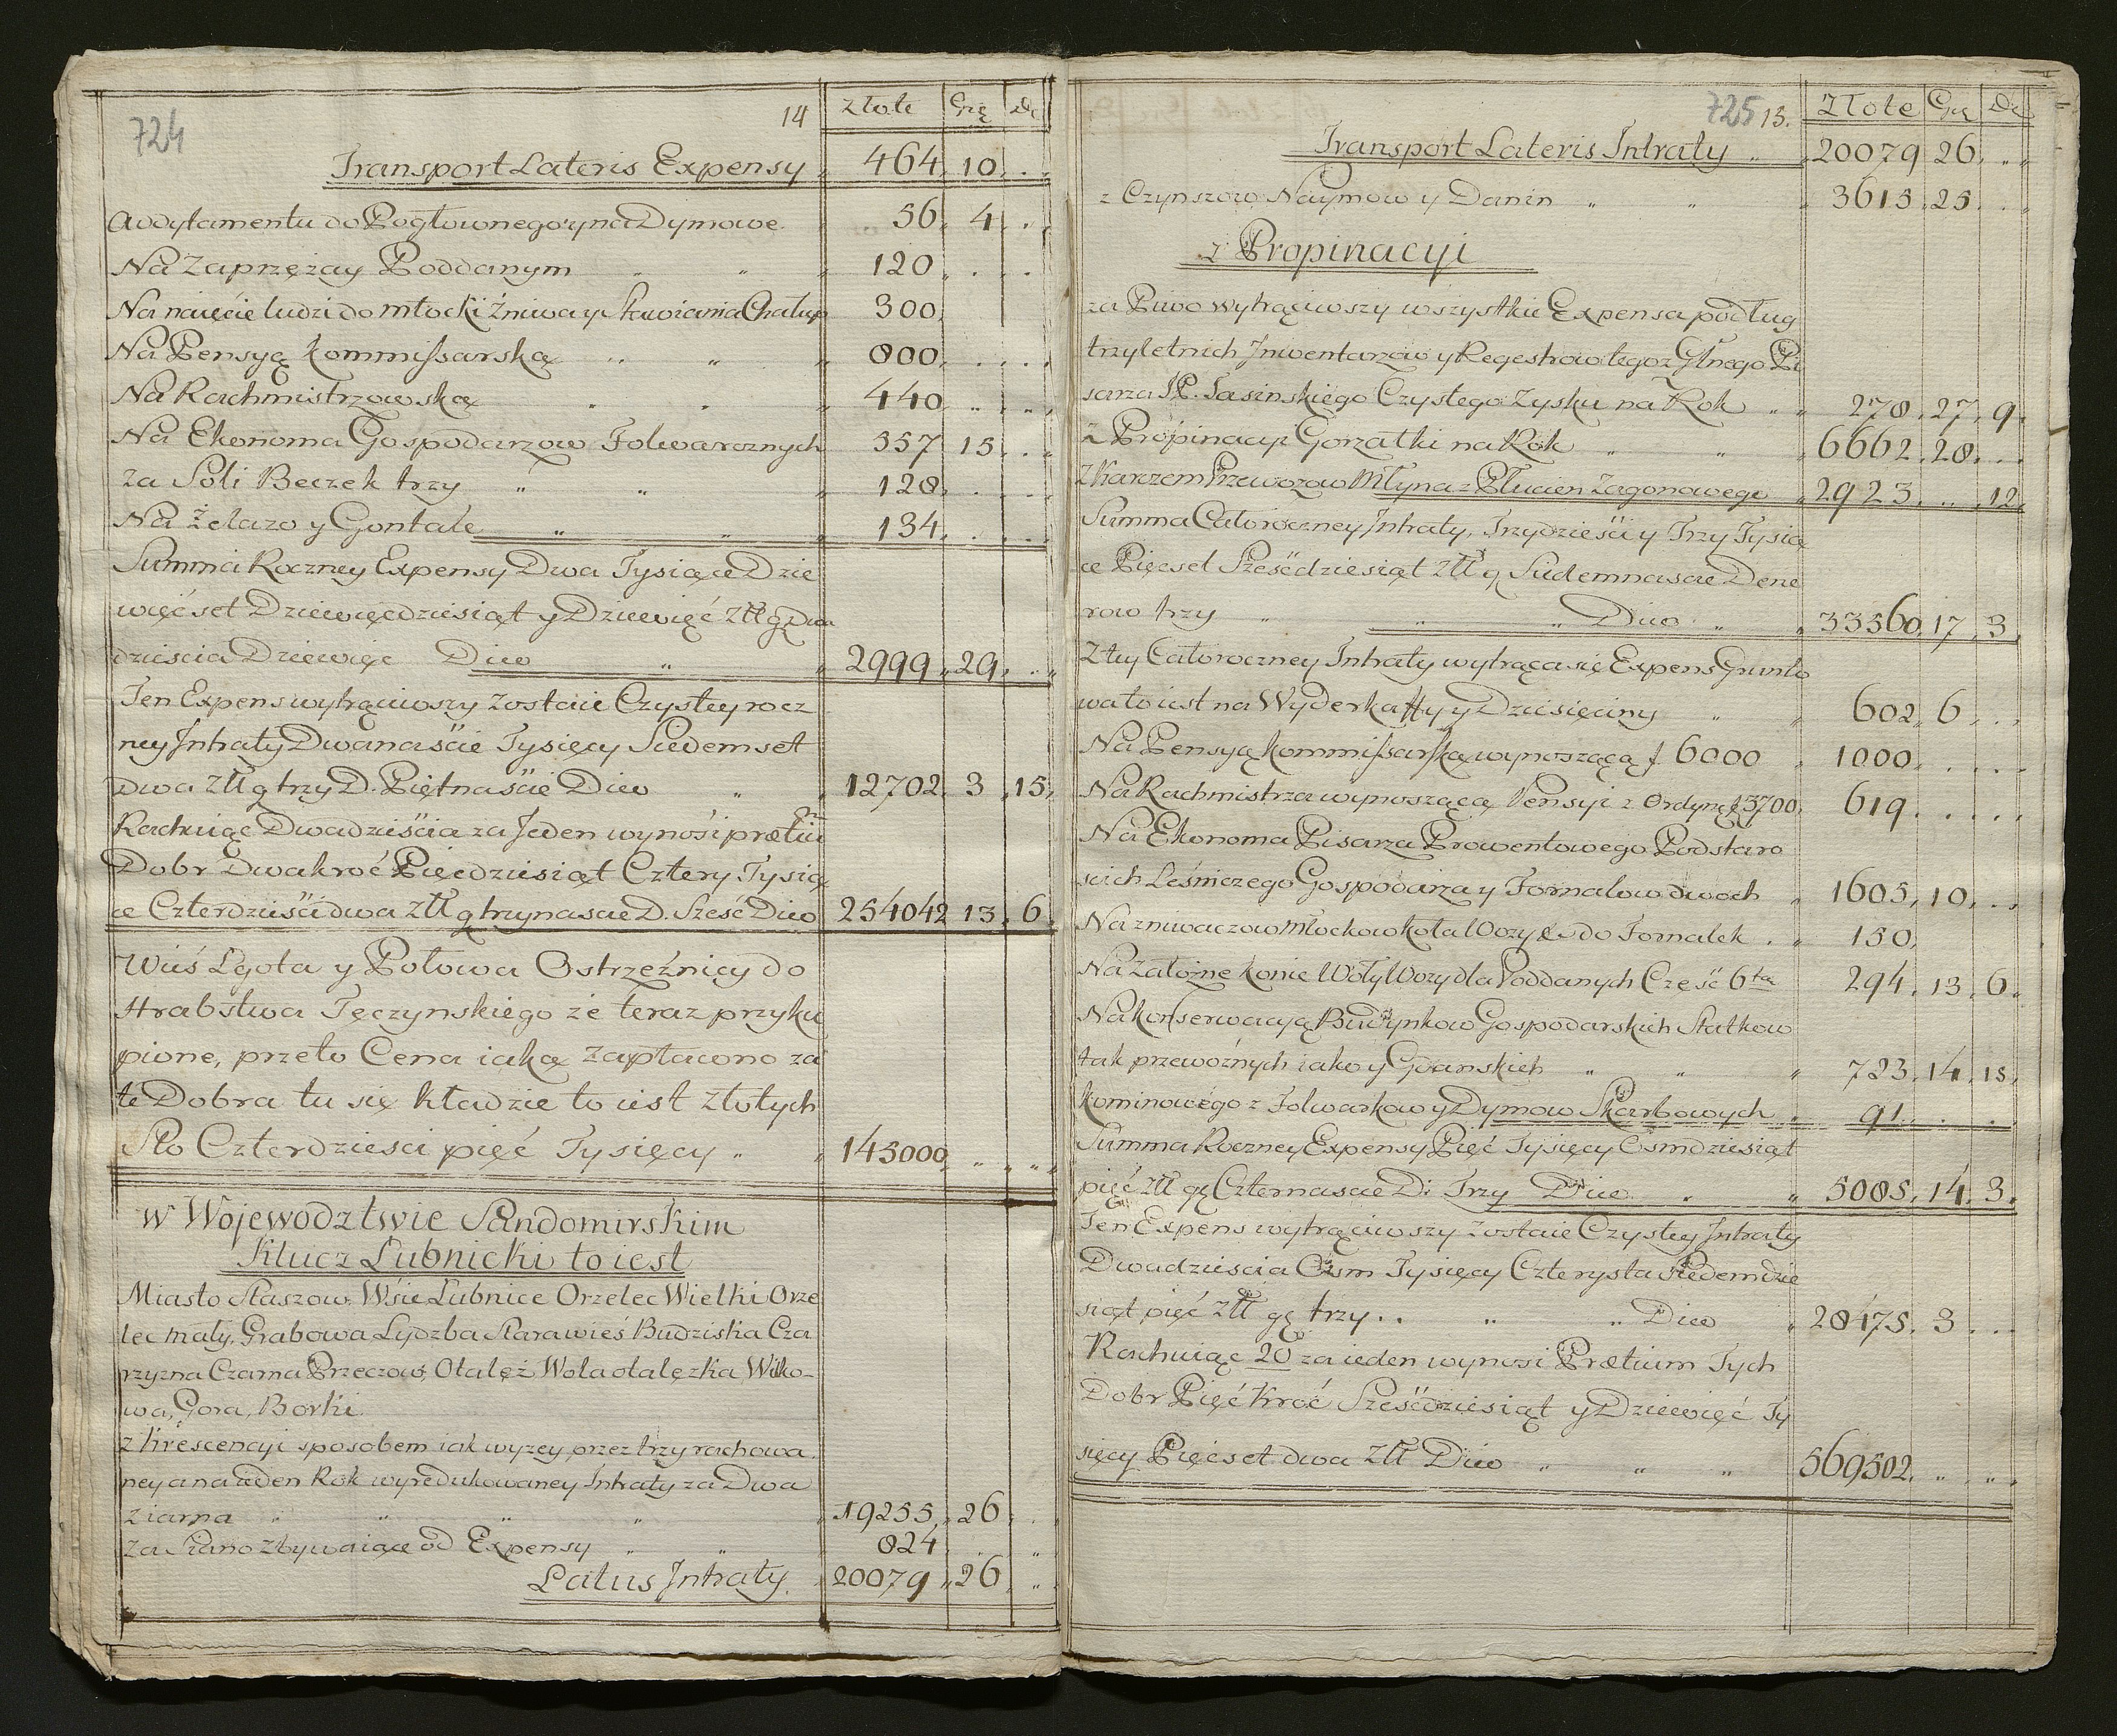 724
14
Złote Grz Dr
Transport Lateris Expensy 464. 10. . .
Addytamentu do Pogłownego y na Dymowe. 56. 4. . .
Na Zaprzężay Poddanym " " " 120. . . .
Na naięcie ludzi do młocki Żniwa y Stawiania Chałup 300.
Na Pensyą Kommissarską " " " 800. . . .
Na Rachmistrzowską " " " 440. . . .
Na Ekonoma Gospodarzow Folwarcznych 557. 15. . .
za Soli Beczek trzy " " " 128. . . .
Na Żelazo y Gontale " " " 134. . . .
Summa Roczney Expensy Dwa Tysiące Dzie
więćset Dziewięćdziesiąt y Dziewięć złł gr Dwa
dziescia Dziewięć Dico " " 2999. 29. . .
Ten Expens wytrąciwszy zostaie Czystey rocz
ney Intraty Dwanaście Tysięcy Siedemset
dwa złł g trzy D. Piętnaście Dico " " 12702. 3. 15.
Rachuiąc Dwadzieścia za Jeden wynosi prætiu
Dobr Dwakroć Pięćdziesiąt Cztery Tysią
ce Czterdzieści dwa złł g trzynascie D. Sześć Dico 254042 13. 6.
Wieś Lgota y Połowa Ostrzeźnicy do
Hrabstwa Tęczynskiego że teraz przyku
pione, przeto Cena iaką zapłacono za
te Dobra tu się kładzie to iest złotych
Sto Czterdziesci pięć Tysięcy " " 145000. " " "
w Wojewodztwie Sandomirskim
Klucz Lubnicki to iest
Miasto Staszow, Wsie Lubnice Orzelec Wielki Orze
lec mały, Grabowa Lydzba Stara wieś Budziska Cza
rzyzna Czarna Przeczow, Otałęż Wola otalęzka, Wilko-
wa, Gora, Borki.
z Krescencyi sposobem iak wyzey przez trzy rachowa
ney a na ieden Rok wyredukowaney Intraty za Dwa
Ziarna " " " " 19255. 26. . .
Za Siano zbywaiące od Expensy " " 824 . . "
Latus Intraty. 20079. 26. "
725
15.
Złote Grz Dr
Transport Lateris Intraty " 20079 26. . .
z Czynszow Naymow y Danin " " 3615. 25. . .
z Propinacyi
za Piwo wytrąciwszy wszystkie Expensa podług
trzyletnich Inwentarzow y Regestrow tegoż Głnego Pi
sarza JP. Jasinskiego Czystego Zysku na Rok " " 278. 27. 9.
z Propinacyi Gorzałki na Rok " " 6662. 28. . .
z Karczem Przewozow Młyna z Płucien Zagonowego " 2923. . . 12.
Summa Całoroczney Intraty, Trzydzieści y Trzy Tysią
ce Pięcset Sześćdziesiąt Złł g Siedemnascie Dene
row trzy " " " Dico " " 33560. 17. 3.
Z tey Całoroczney Intraty wytrąca się Expens Grunto
wa to iest na Wyderkaffy y Dziesięciny " " 602. 6. . .
Na Pensyą Kommissarską wynoszącą f. 6000 " 1000. . . .
Na Rachmistrza wynoszącą Pensyi z Ordyną f 3700. 619. . . .
Na Ekonoma Pisarza Prowentowego Podstaro
scich Leśniczego Gospodarza y Fornalow dwoch " 1605. 10. . .
Na zniwaczow Młockow Koła Wozy &c do Fornalek . " 150.
Na założne konie Woły Wozy dla Poddanych Część 6ta 294. 13. 6.
Na konserwacyą Budynkow Gospodarskich Statkow
tak przewoźnych iako y Gdanskich " " " 723. 14. 15.
Kominowego z Folwarkow y Dymow Skarbowych " 91. . . .
Summa Roczney Expensy Pięć Tysięcy Osmdziesiąt
pięć złł gr Czternascie D: Trzy Dico " " 5085. 14. 3.
Ten Expens wytrąciwszy zostaie Czystey Intraty
Dwadziescia Osm Tysięcy Czterysta Siedemdzie
siąt pięć złł gr trzy . . " " Dico " 28475. 3. . .
Rachuiąc 20 za ieden wynosi Prætium Tych
Dobr Pięć Kroć Sześćdziesiąt y Dziewięć Ty
sięcy Pięcset dwa złł Dico " " " 569502. " " .